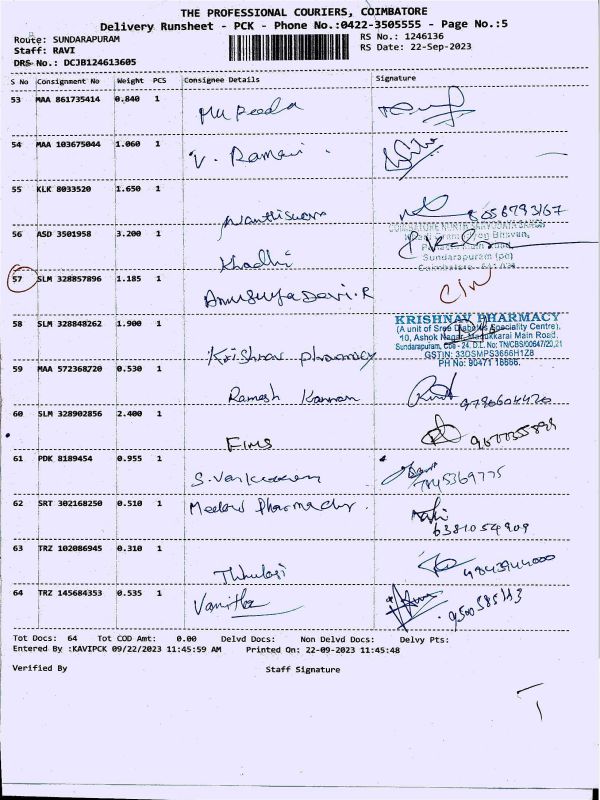 THE PROFESSIONAL COURIERS, COIMBATORE
Delivery Runsheet - PCK - Phone No.:0422-3505555 - Page No.:5
Route: SUNDARAPURAM RS No.: 1246136
Staff: RAVI RS Date: 22-Sep-2023
DRS No.: DCJB124613605
S No Consignment No Weight PCS Consignee Details Signature
53 MAA 861735414 0.840 1
54 MAA 103675044 1.060 1
V. Ramani.
55 KLK 8033520 1.650 1
8056793167
56 ASD 3501958 3.200 1
Khadhi
Sundarapuram (po)
57 SLM 328857896 1.185 1
Anusuya Devi.R
58 SLM 328848262 1.900 1
Krishnav pharmacy
KRISHNAV PHARMACY
(A unit of Sree Diabetes Speciality Centre),
10, Ashok Nagar, Madukkarai Main Road,
Sundarapuram, Cbe - 24. D.L. No: TN/CBS/00647/20,21
GSTIN: 33DSMPS3666H1Z8
PH No: 90471 16666.
59 MAA 572368720 0.530 1
Ramesh Kannan
60 SLM 328902856 2.400 1
Fims
61 PDK 8189454 0.955 1
7845369775
62 SRT 302168250 0.510 1
6381054909
63 TRZ 102086945 0.310 1
Thhulasi 9843944000
64 TRZ 145684353 0.535 1
Vanitha
Tot Docs: 64 Tot COD Amt: 0.00 Delvd Docs: Non Delvd Docs: Delvy Pts:
Entered By :KAVIPCK 09/22/2023 11:45:59 AM Printed On: 22-09-2023 11:45:48
Verified By Staff Signature